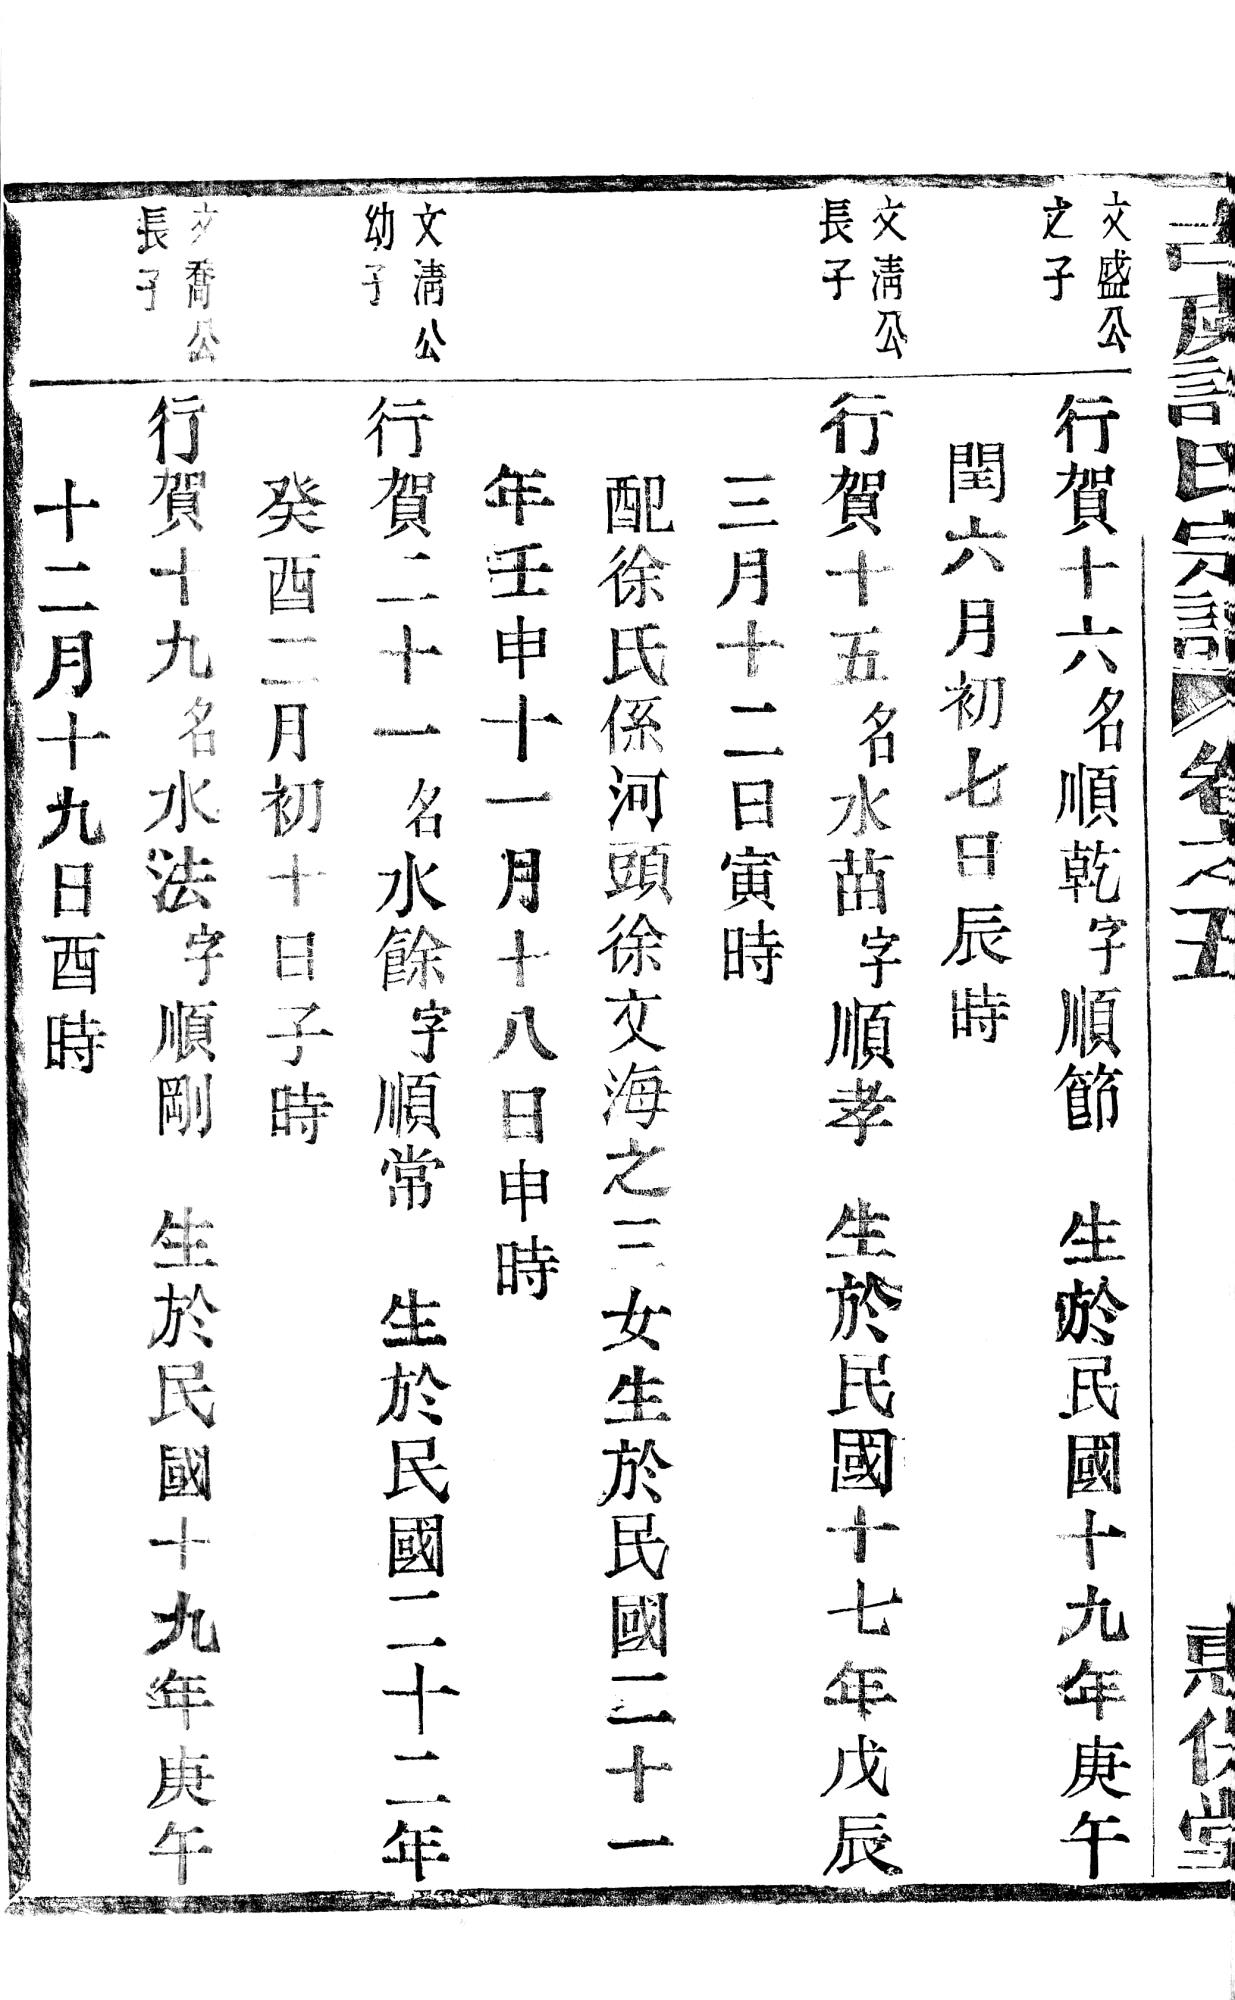 氏宗譜 卷之五
惠保堂
文盛公
之子
行賀十六名順乾字順節 生於民國十九年庚午
閏六月初七日辰時
文淸公
長子
行賀十五名水苗字順孝 生於民國十七年戊辰
三月十二日寅時
配徐氏係河頭徐文海之三女生於民國二十一
年壬申十一月十八日申時
文淸公
幼子
行賀二十一名水餘字順常 生於民國二十二年
癸酉二月初十日子時
文喬公
長子
行賀十九名水法字順剛 生於民國十九年庚午
十二月十九日酉時